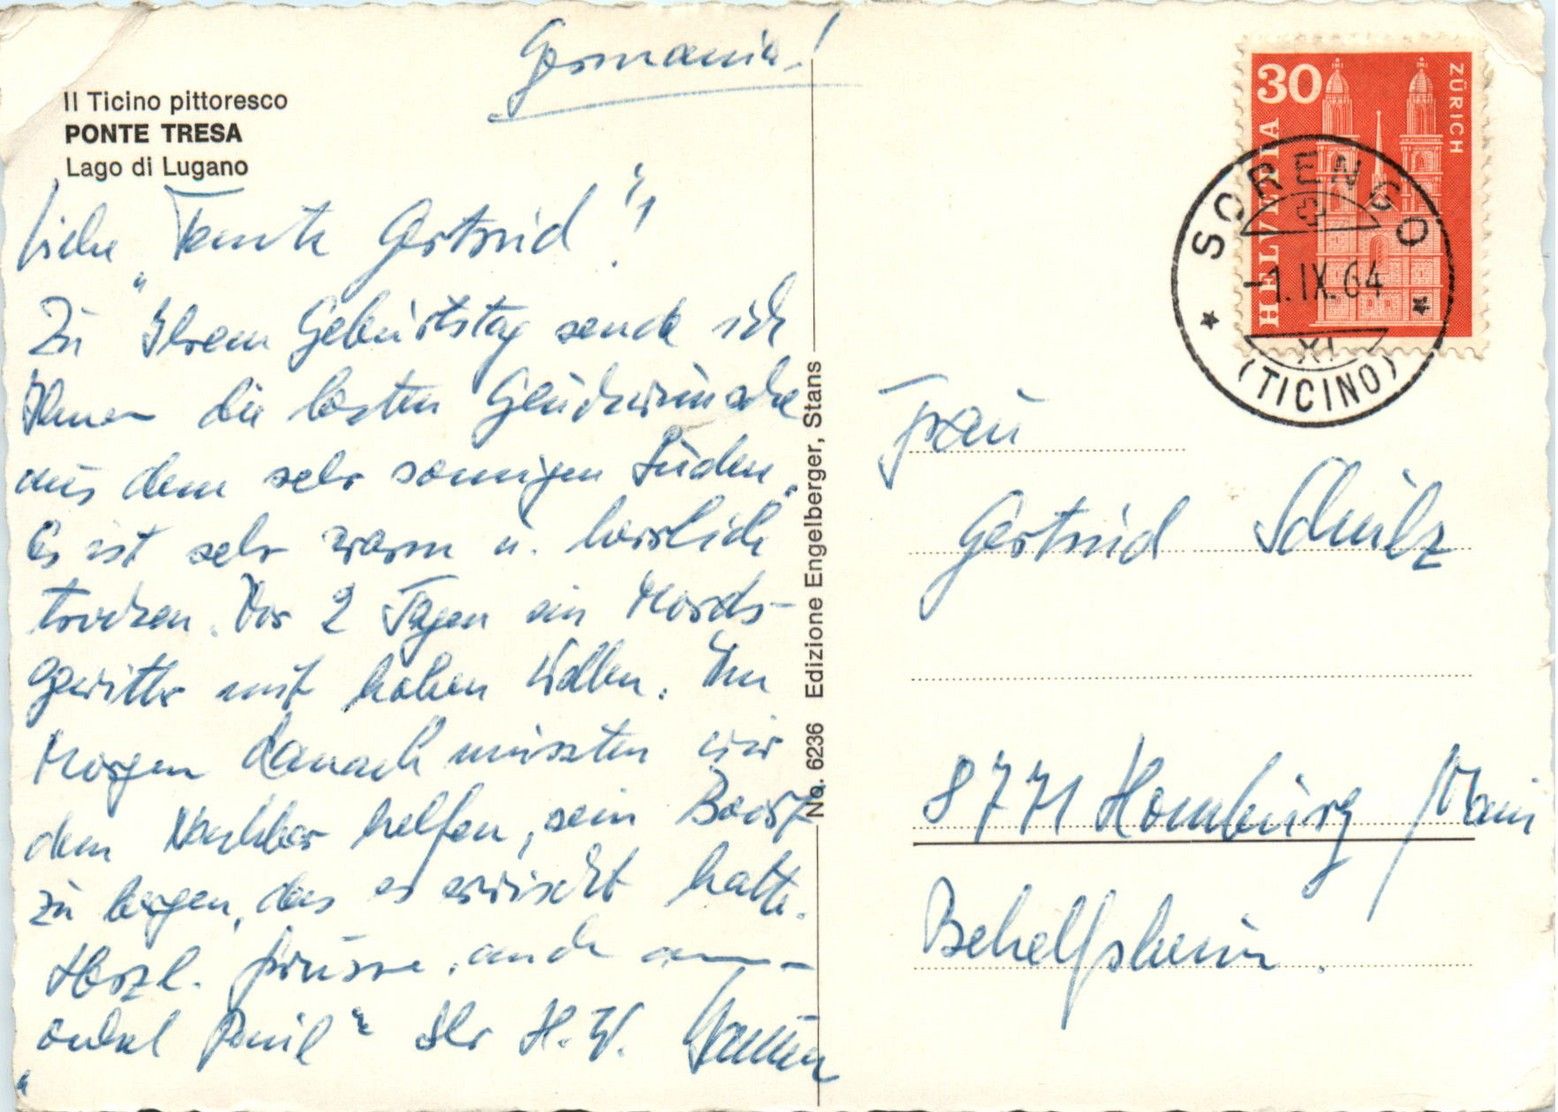 Germania!
Il Ticino pittoresco
PONTE TRESA
Lago di Lugano
Liebe "Tante Gertrud"!
Zu Ihrem Geburtstag sende ich
Ihnen die besten Glückwünsche
aus dem sehr sonnigen Süden.
Es ist sehr warm u. herrlich
trocken. Vor 2 Tagen ein Mords-
gewitter mit hohen Wellen. Am
Morgen danach mussten wir
dem Nachbar helfen, sein Boot
zu bergen, das es erwischt hatte.
Herzl. Grüsse, auch an
"onkel Paul" Ihr H.W.
No. 6236 Edizione Engelberger, Stans
30
HELVETIA
ZÜRICH
SORENGO
-1.IX.64
XI
(TICINO)
Frau
Gertrud Schulz
8771 Homburg/Main
Behelfsheim.